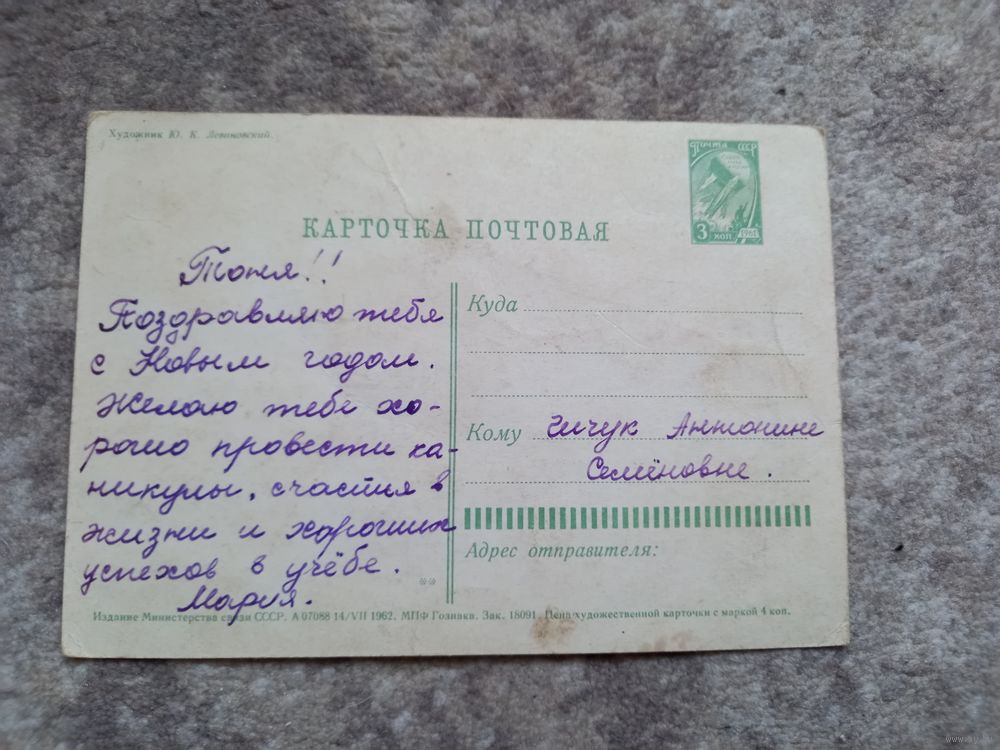 Художник Ю. К. Левиновский.
ПОЧТА СССР
3 КОП
1961
КАРТОЧКА ПОЧТОВАЯ
Тоня!!
Поздравляю тебя
с Новым годом.
Желаю тебе хо-
рошо провести ка-
никулы, счастья в
жизни и хороших
успехов в учёбе.
Мария.
Куда
Кому Гичук Антонине
Семёновне.
Адрес отправителя:
Издание Министерства связи СССР. А 07088 14/VII 1962. МПФ Гознака. Зак. 18091. Цена художественной карточки с маркой 4 коп.